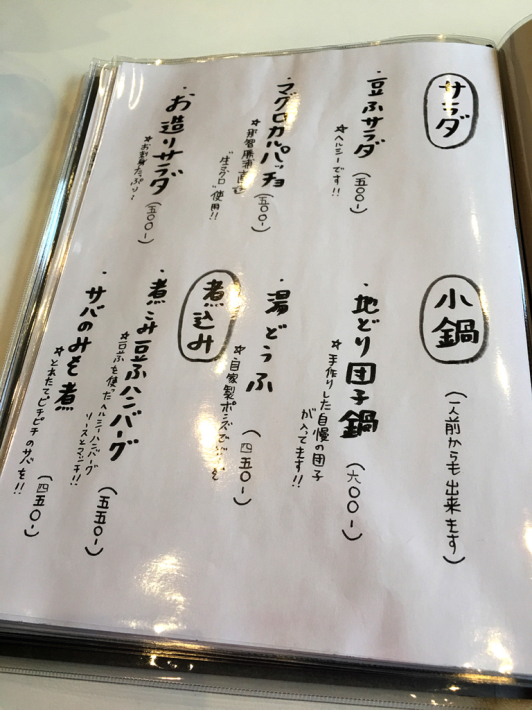 サラダ
・豆ふサラダ
(五〇〇-)
☆ヘルシーです!!
・マグロカルパッチョ
(五〇〇-)
☆那智勝浦直送
"生マグロ"使用!!
・お造りサラダ
(五〇〇-)
☆お刺身たっぷり
小鍋
(一人前からも出来ます)
・地どり団子鍋
(六〇〇-)
☆手作りした自慢の団子
が入ってます!!
・湯どうふ
(四五〇-)
☆自家製ポンズで
煮込み
・煮こみ豆ふハンバーグ
(五五〇-)
☆豆ふを使ったヘルシーハンバーグ
ソースとマッチ!!
・サバのみそ煮
(四五〇-)
☆とれたてピチピチのサバを!!